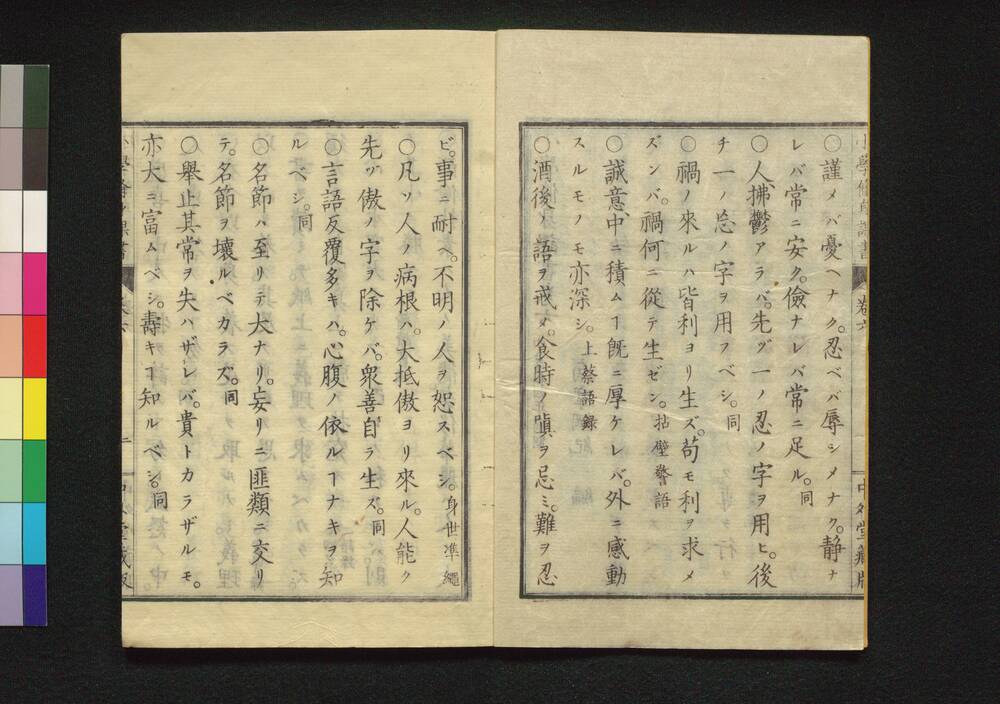 ○謹メバ憂ヘナク。忍ベバ辱シメナク。静ナ
レバ常ニ安ク。儉ナレバ常ニ足ル。同
○人、拂鬱アラバ。先ヅ一ノ忍ノ字ヲ用ヒ。後
チ一ノ忘ノ字ヲ用フベシ。同
○禍ノ來ルハ皆利ヨリ生ズ。苟モ利ヲ求メ
ズンバ。禍何ニ從テ生ゼン。拈屏警語
○誠意、中ニ積ムヿ既ニ厚ケレバ。外ニ感動
スルモノモ亦深シ。上蔡語錄
○酒後ノ語ヲ戒メ。食時ノ嗔ヲ忌ミ。難ヲ忍
ビ。事ニ耐ヘ。不明ノ人ヲ恕スベシ。身世準繩
○凡ソ人ノ病根ハ。大抵傲ヨリ來ル。人能ク
先ヅ傲ノ字ヲ除ケバ。衆善自ラ生ズ。同
○言語反覆多キハ。心腹ノ依ルヿナキヲ知
ルベシ。同
○名節ハ至リテ大ナリ。妄リニ匪類ニ交リ
テ。名節ヲ壞ルベカラズ。同
○舉止其常ヲ失ハザレバ。貴トカラザルモ。
亦大ニ富ムベシ。壽キヿ知ルベシ。同